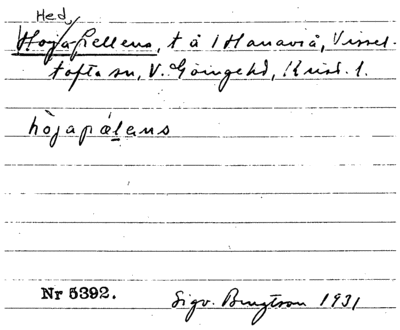 Hed
Höjapellens, t å 1 Hanaviå, Vissel-
tofta sn, V. Göingehd, Krist. l.
hòjapælens
Nr 5392.
Sigv. Bengtson 1931